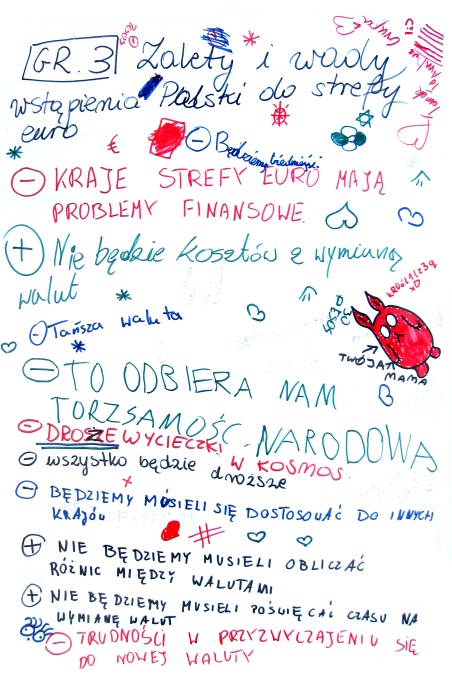 GR. 3 Zalety i wady
wstąpienia Polski do strefy
euro
€
- Będziemy biedniejsi
- KRAJE STREFY EURO MAJĄ
PROBLEMY FINANSOWE.
+ Nie będzie kosztów z wymianą
walut
- Tańsza waluta
TWOJA
MAMA
- TO ODBIERA NAM
TORZSAMOŚĆ NARODOWĄ
- DROŻSZE WYCIECZKI
W KOSMOS.
- wszystko będzie droższe
- BĘDZIEMY MUSIELI SIĘ DOSTOSOWAĆ DO INNYCH
KRAJÓW
#
+ NIE BĘDZIEMY MUSIELI OBLICZAĆ
RÓŻNIC MIĘDZY WALUTAMI
+ NIE BĘDZIEMY MUSIELI POŚWIĘCAĆ CZASU NA
WYMIANĘ WALUT
- TRUDNOŚCI W PRZYZWYCZAJENIU SIĘ
DO NOWEJ WALUTY